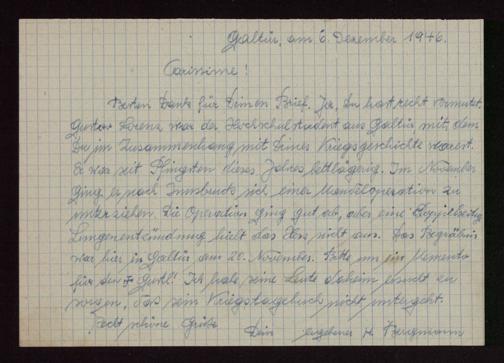 Galtür, am 6. Dezember 1946.
Carissime!
Besten Dank für Deinen Brief. Ja, Du hast recht vermutet,
Gustav Lorenz war der Hochschulstudent aus Galtür, mit dem
Du im Zusammenhang mit Deiner Kriegsgeschichte warest.
Er war seit Pfingsten dieses Jahres bettlägerig. Im November
ging er nach Innsbruck sich einer Mandeloperation zu
unterziehen. Die Operation ging gut ab, aber eine doppelseitige
Lungenentzündung hielt das Herz nicht aus. Das Begräbnis
war hier in Galtür am 20. November. Bitte um ein Memento
für den Gustl! Ich habe seine Leute daheim ersucht zu
sorgen, das sein Kriegstagebuch nicht untergeht.
Recht schöne Grüße
Dein ergebener H. Bergmann